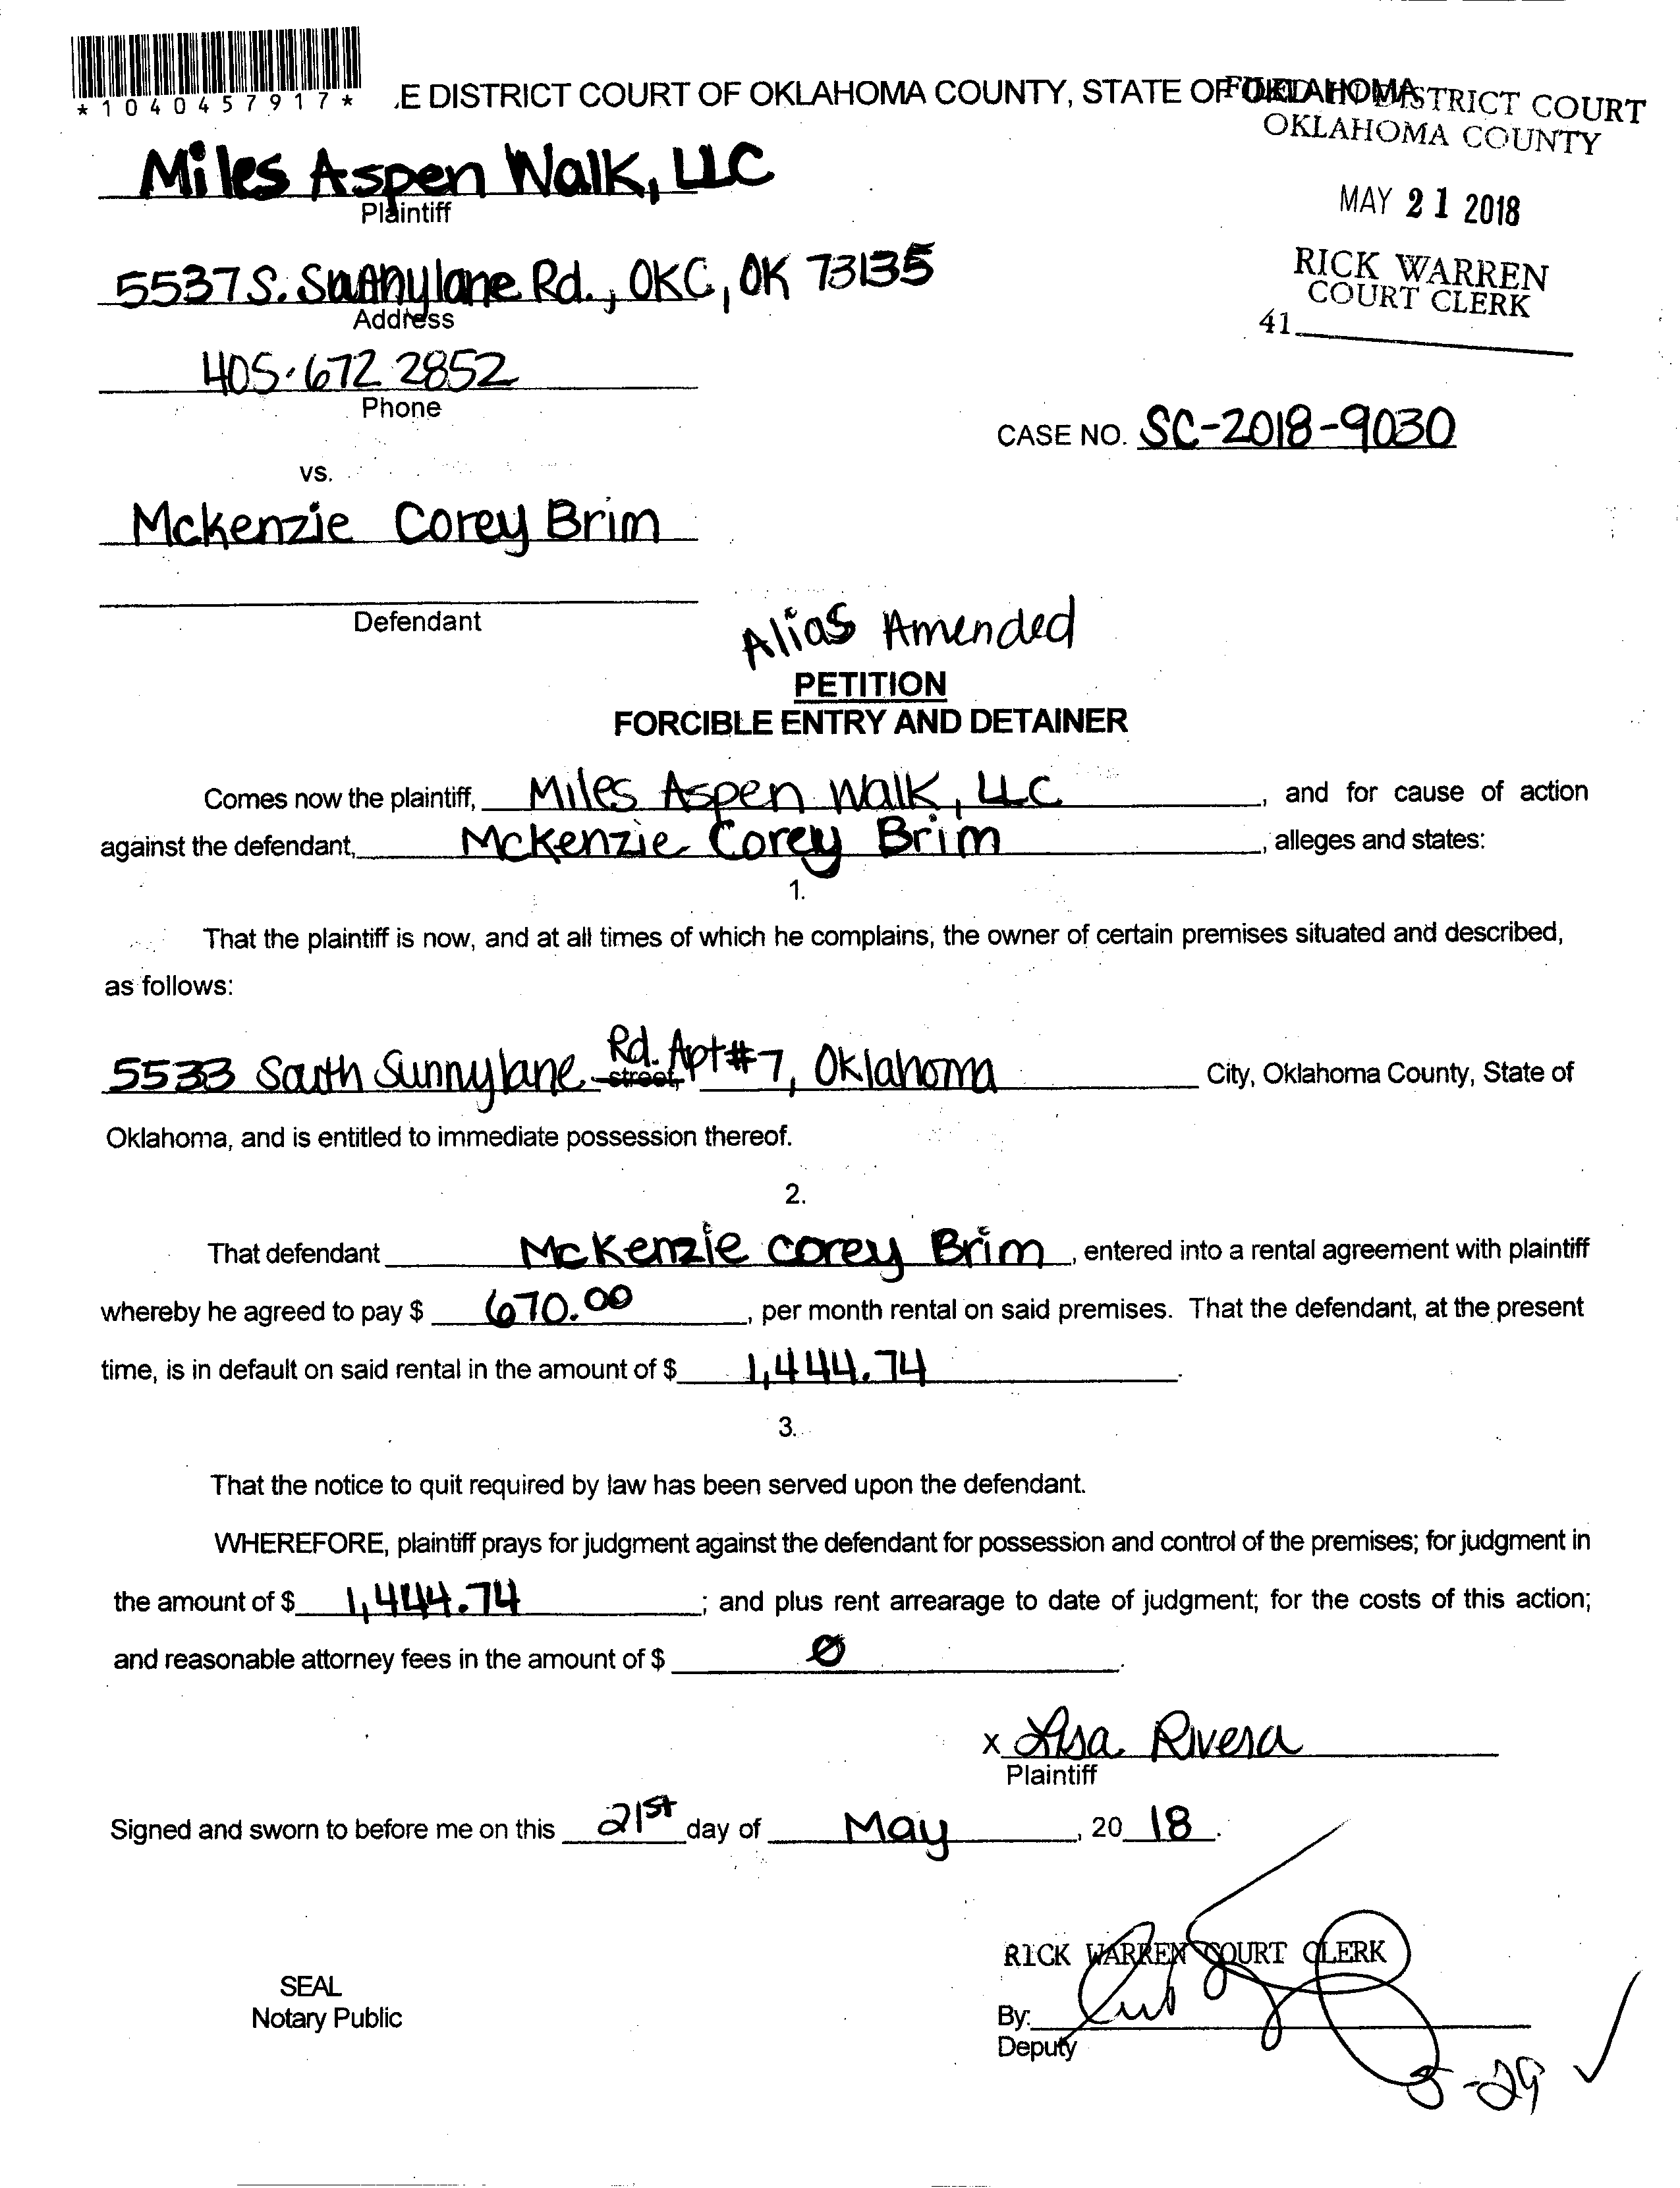 *1040457917*
.E DISTRICT COURT OF OKLAHOMA COUNTY, STATE OF OKLAHOMA
FILED IN DISTRICT COURT
OKLAHOMA COUNTY
MAY 21 2018
RICK WARREN
COURT CLERK
41
Miles Aspen Walk, LLC
Plaintiff
5537 S. Sunnylane Rd., OKC, OK 73135
Address
405.672 2852
Phone
CASE NO. SC-2018-9030
vs.
Mckenzie Corey Brim
Defendant
Alias Amended
PETITION
FORCIBLE ENTRY AND DETAINER
Comes now the plaintiff, Miles Aspen Walk, LLC, and for cause of action
against the defendant, McKenzie Corey Brim, alleges and states:
1.
That the plaintiff is now, and at all times of which he complains, the owner of certain premises situated and described,
as follows:
5533 South Sunnylane street, Rd. Apt#7, Oklahoma City, Oklahoma County, State of
Oklahoma, and is entitled to immediate possession thereof.
2.
That defendant McKenzie Corey Brim, entered into a rental agreement with plaintiff
whereby he agreed to pay $ 670.00, per month rental on said premises. That the defendant, at the present
time, is in default on said rental in the amount of $ 1,444.74.
3.
That the notice to quit required by law has been served upon the defendant.
WHEREFORE, plaintiff prays for judgment against the defendant for possession and control of the premises; for judgment in
the amount of $ 1,444.74; and plus rent arrearage to date of judgment; for the costs of this action;
and reasonable attorney fees in the amount of $ Ø.
x Lisa Rivera
Plaintiff
Signed and sworn to before me on this 21st day of May, 20 18.
RICK WARREN COURT CLERK
SEAL
Notary Public
By:
Deputy
5-29 ✓